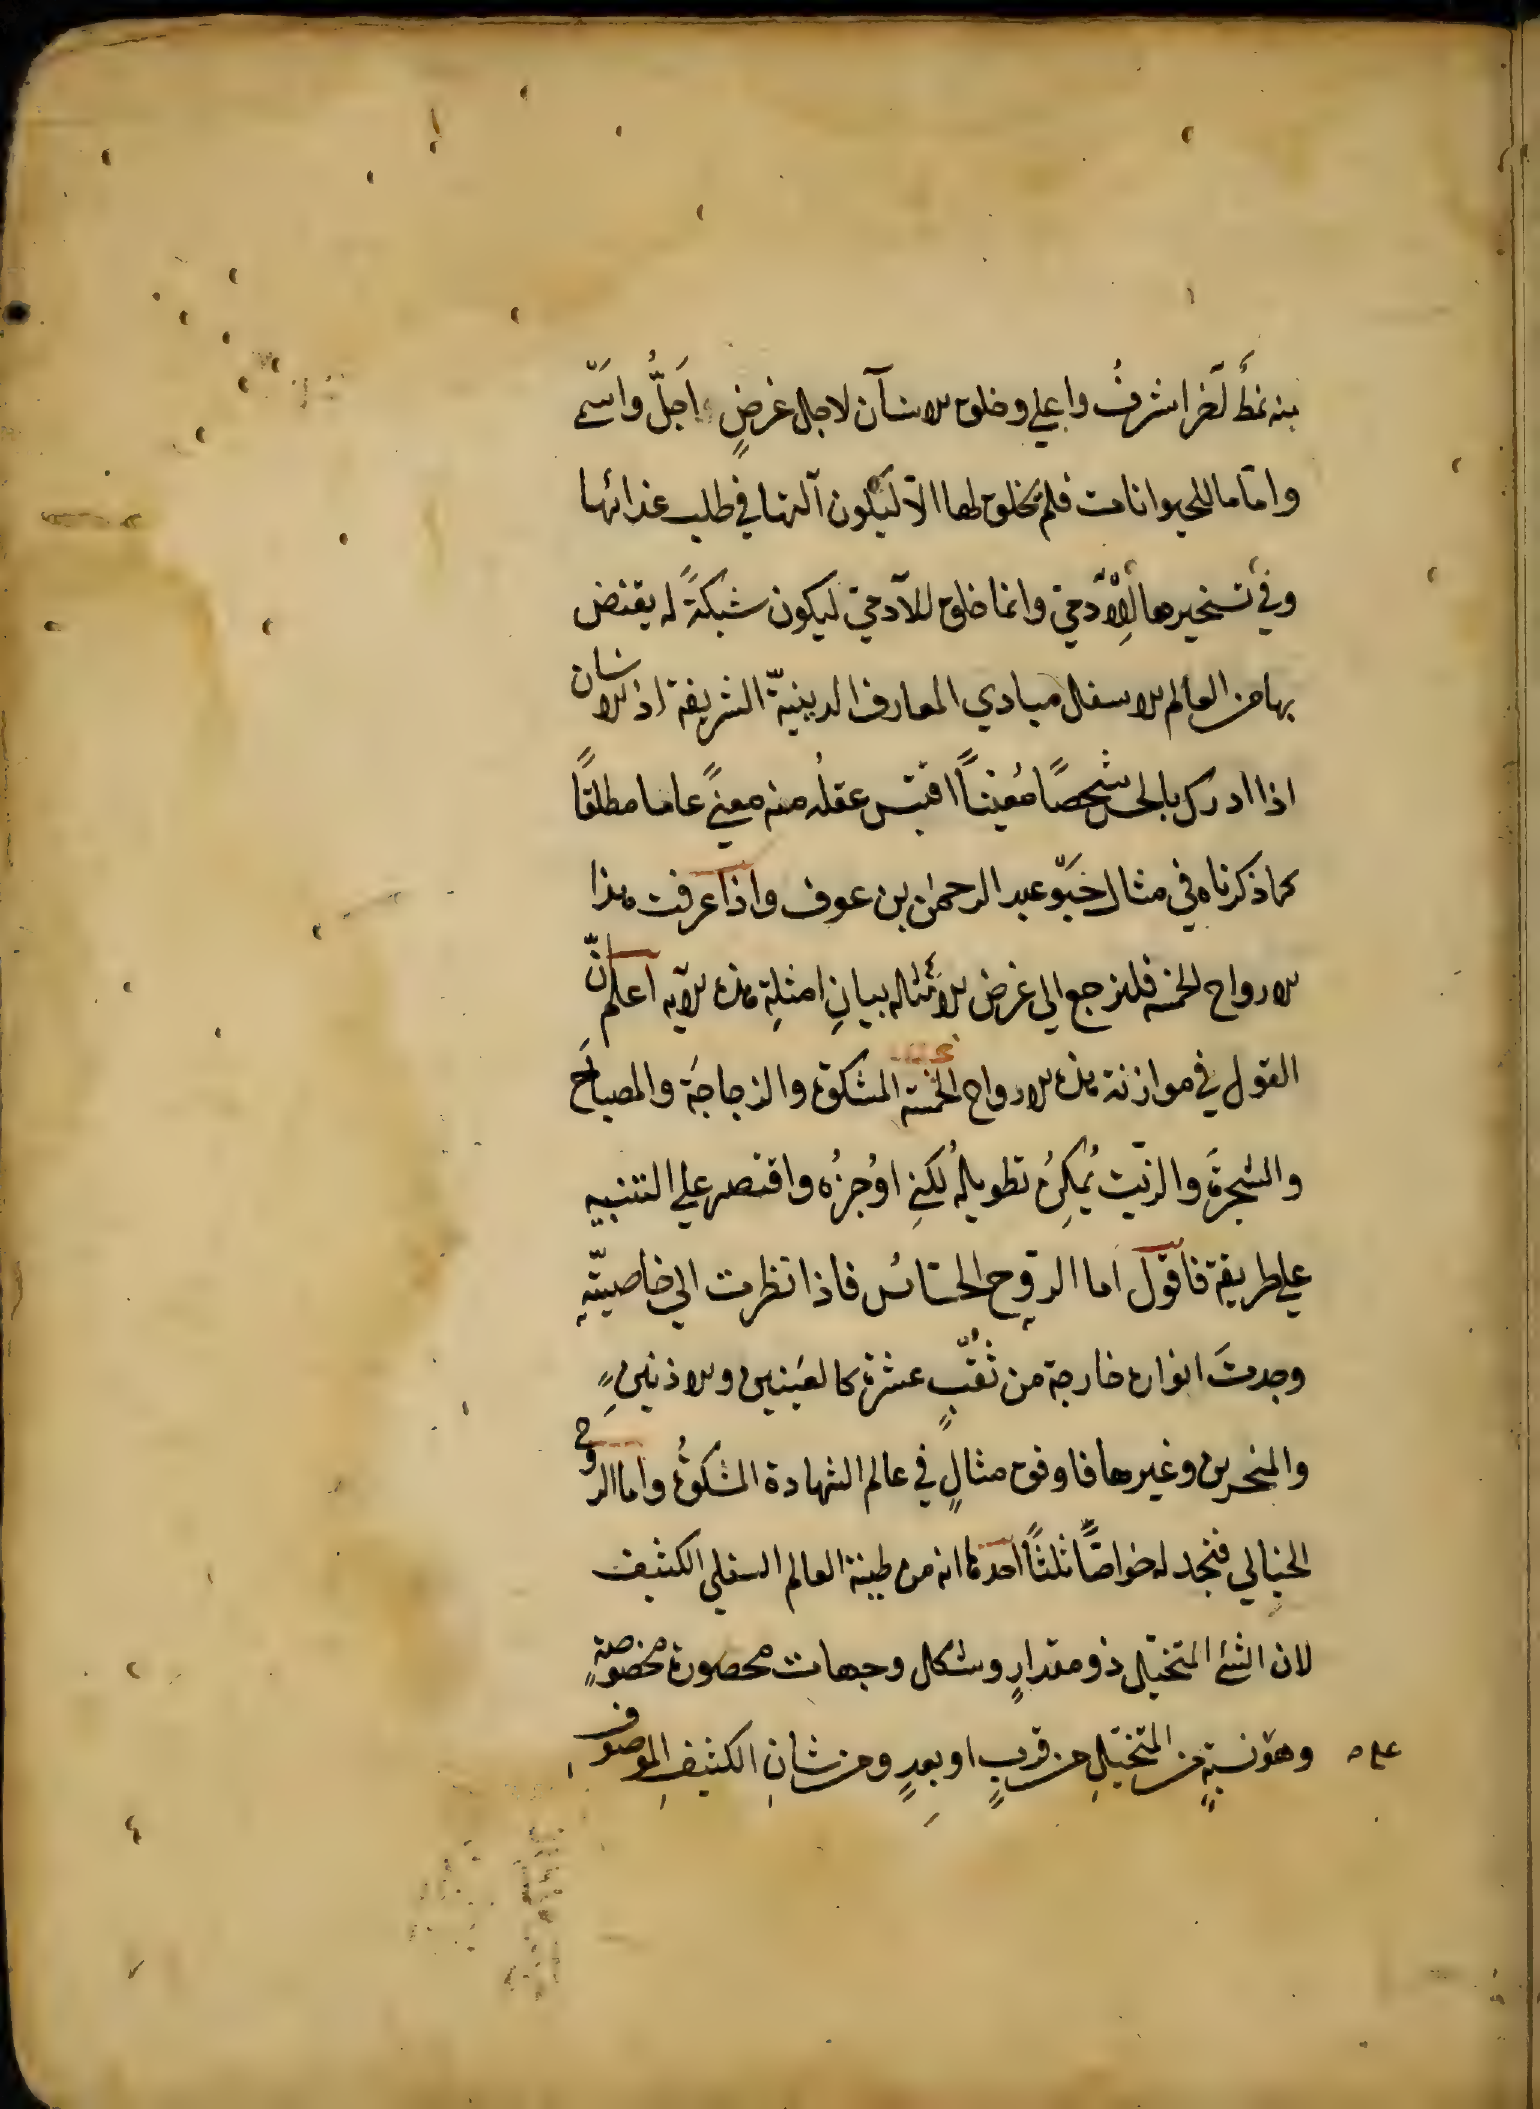 منه نمطٌ آخر اشرفُ واعلي وخلق للانسان لاجل غرضٍ اجلُّ واسمي
وامّا ما للحيوانات فلم يخلق لها الّا ليكون آلتها في طلب غذائها
وفي تسخيرها للآدمي وانما خلق للآدمي ليكون شبكةً له يقتنص
بها من العالم الاسفل مبادي المعارف الدينيّة الشريفة اذ الانسان
اذا ادرك بالحسّ شخصًا معيّنًا اقتبس عقلُه منه معنيً عاما مطلقًا
كما ذكرناه في مثال حَبْو عبد الرحمٰن بن عوف واذا عرفت هذا
الارواح الخمسه فلنرجع الي غرض الامثاله بيانِ امثلةِ هذه الآيه اعلم انّ
القول في موازنة هذه الارواح الخمسة المشكوة والزجاجَة والمصباحَ
والشجرةَ والزيت يُمكِنُ تطويلُه لكني اوُجزُه واقتصر علي التنبيه
علي طريقة فاقول اما الروح الحسّاس فاذا نظرت الي خاصيّته
وجدتَ انواره خارجة من ثُقْبٍ عشرة كالعَينين والاذنينِ
والمنخرين وغيرها فاوفق مثالٍ في عالم الشهادة المشكوةُ واما الروح
الخيالي فنجد له خواصًّا ثلثًا احدها انه من طينة العالم السفلي الكثيف
لان الشئ المتخيّل ذو مقدارٍ وشكل وجهات محصورة مخصوصةٍ
وهو نسبةٍ من المتخيّلِ من قربٍ او بعدٍ ومن شانِ الكثيفِ الموصوف
علي ه